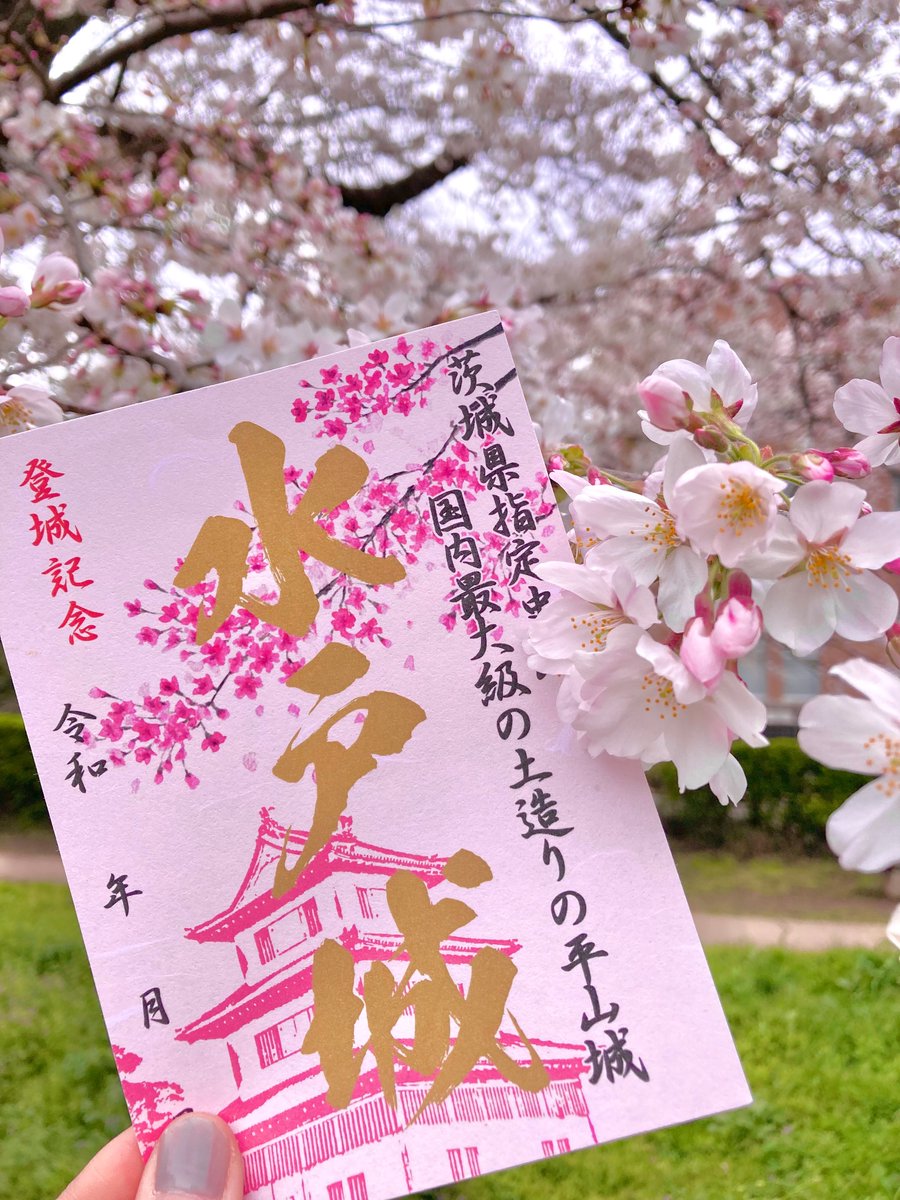 茨城県指定
国内最大級の土造りの平山城
水戸城
登城記念
令和　年　月